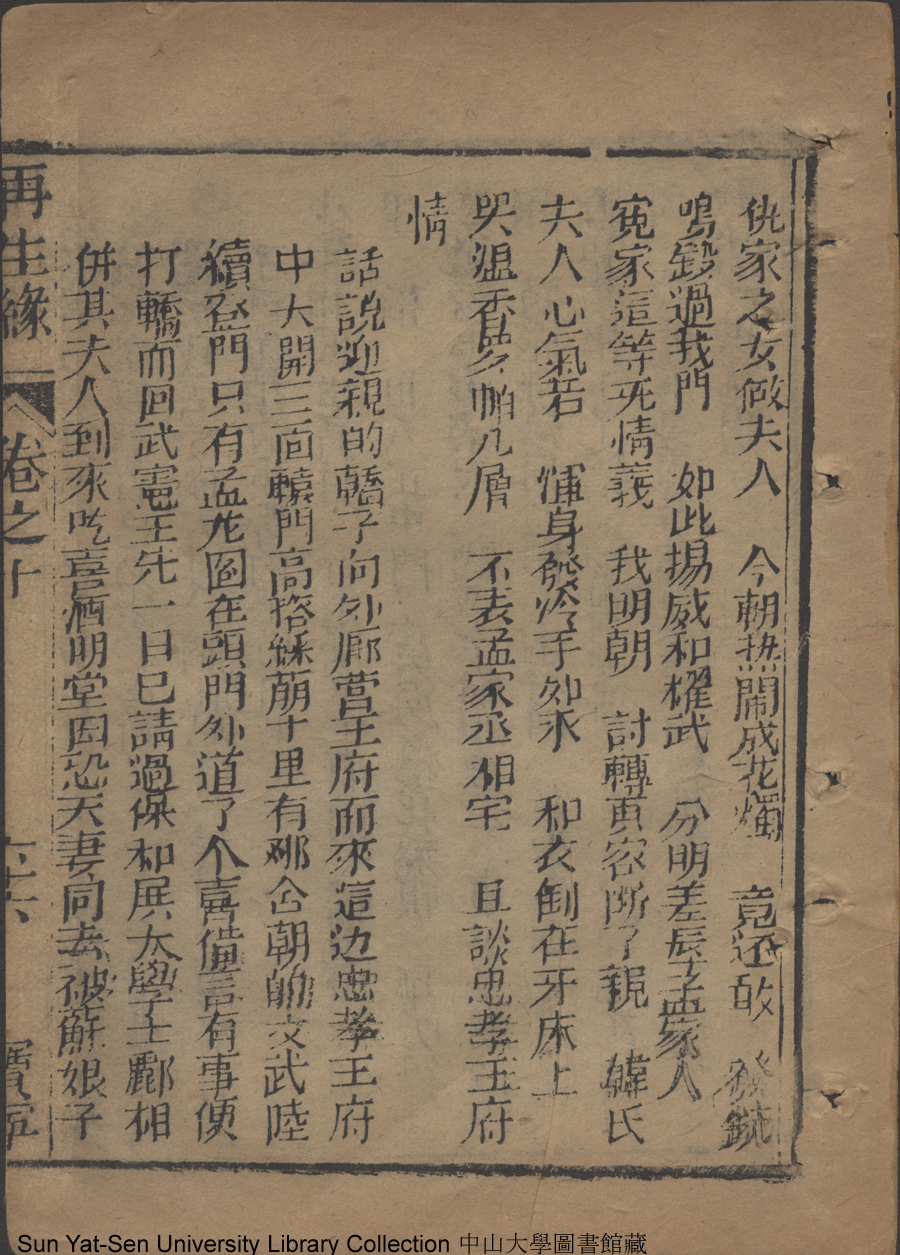 仇家之女做夫人　今朝热鬧成花燭　竟还敢　發銃
鳴鑼過我門　如此揚威和耀武　分明羞辱孟家人
寃家這等无情義　我明朝　討轉真容断了親　韓氏
夫人心氣若　渾身發冷手如氷　和衣倒在牙床上
哭湿香羅帕几層　不表孟家丞相宅　且談忠孝王府
情
話說迎親的轎子向外廊營王府而來這边忠孝王府
中大開三面轅門高搭綵蓢十里有那合朝的文武陸
續登門只有孟龙圖在頭門外道了个喜僅言有事便
打轎而回武憲王先一日已請過保和展大學士酈相
併其夫人到來吃喜酒明堂因恐夫妻同去被蘇娘子
再生緣　卷之十　六十六　寶寕
Sun Yat-Sen University Library Collection 中山大學圖書館藏